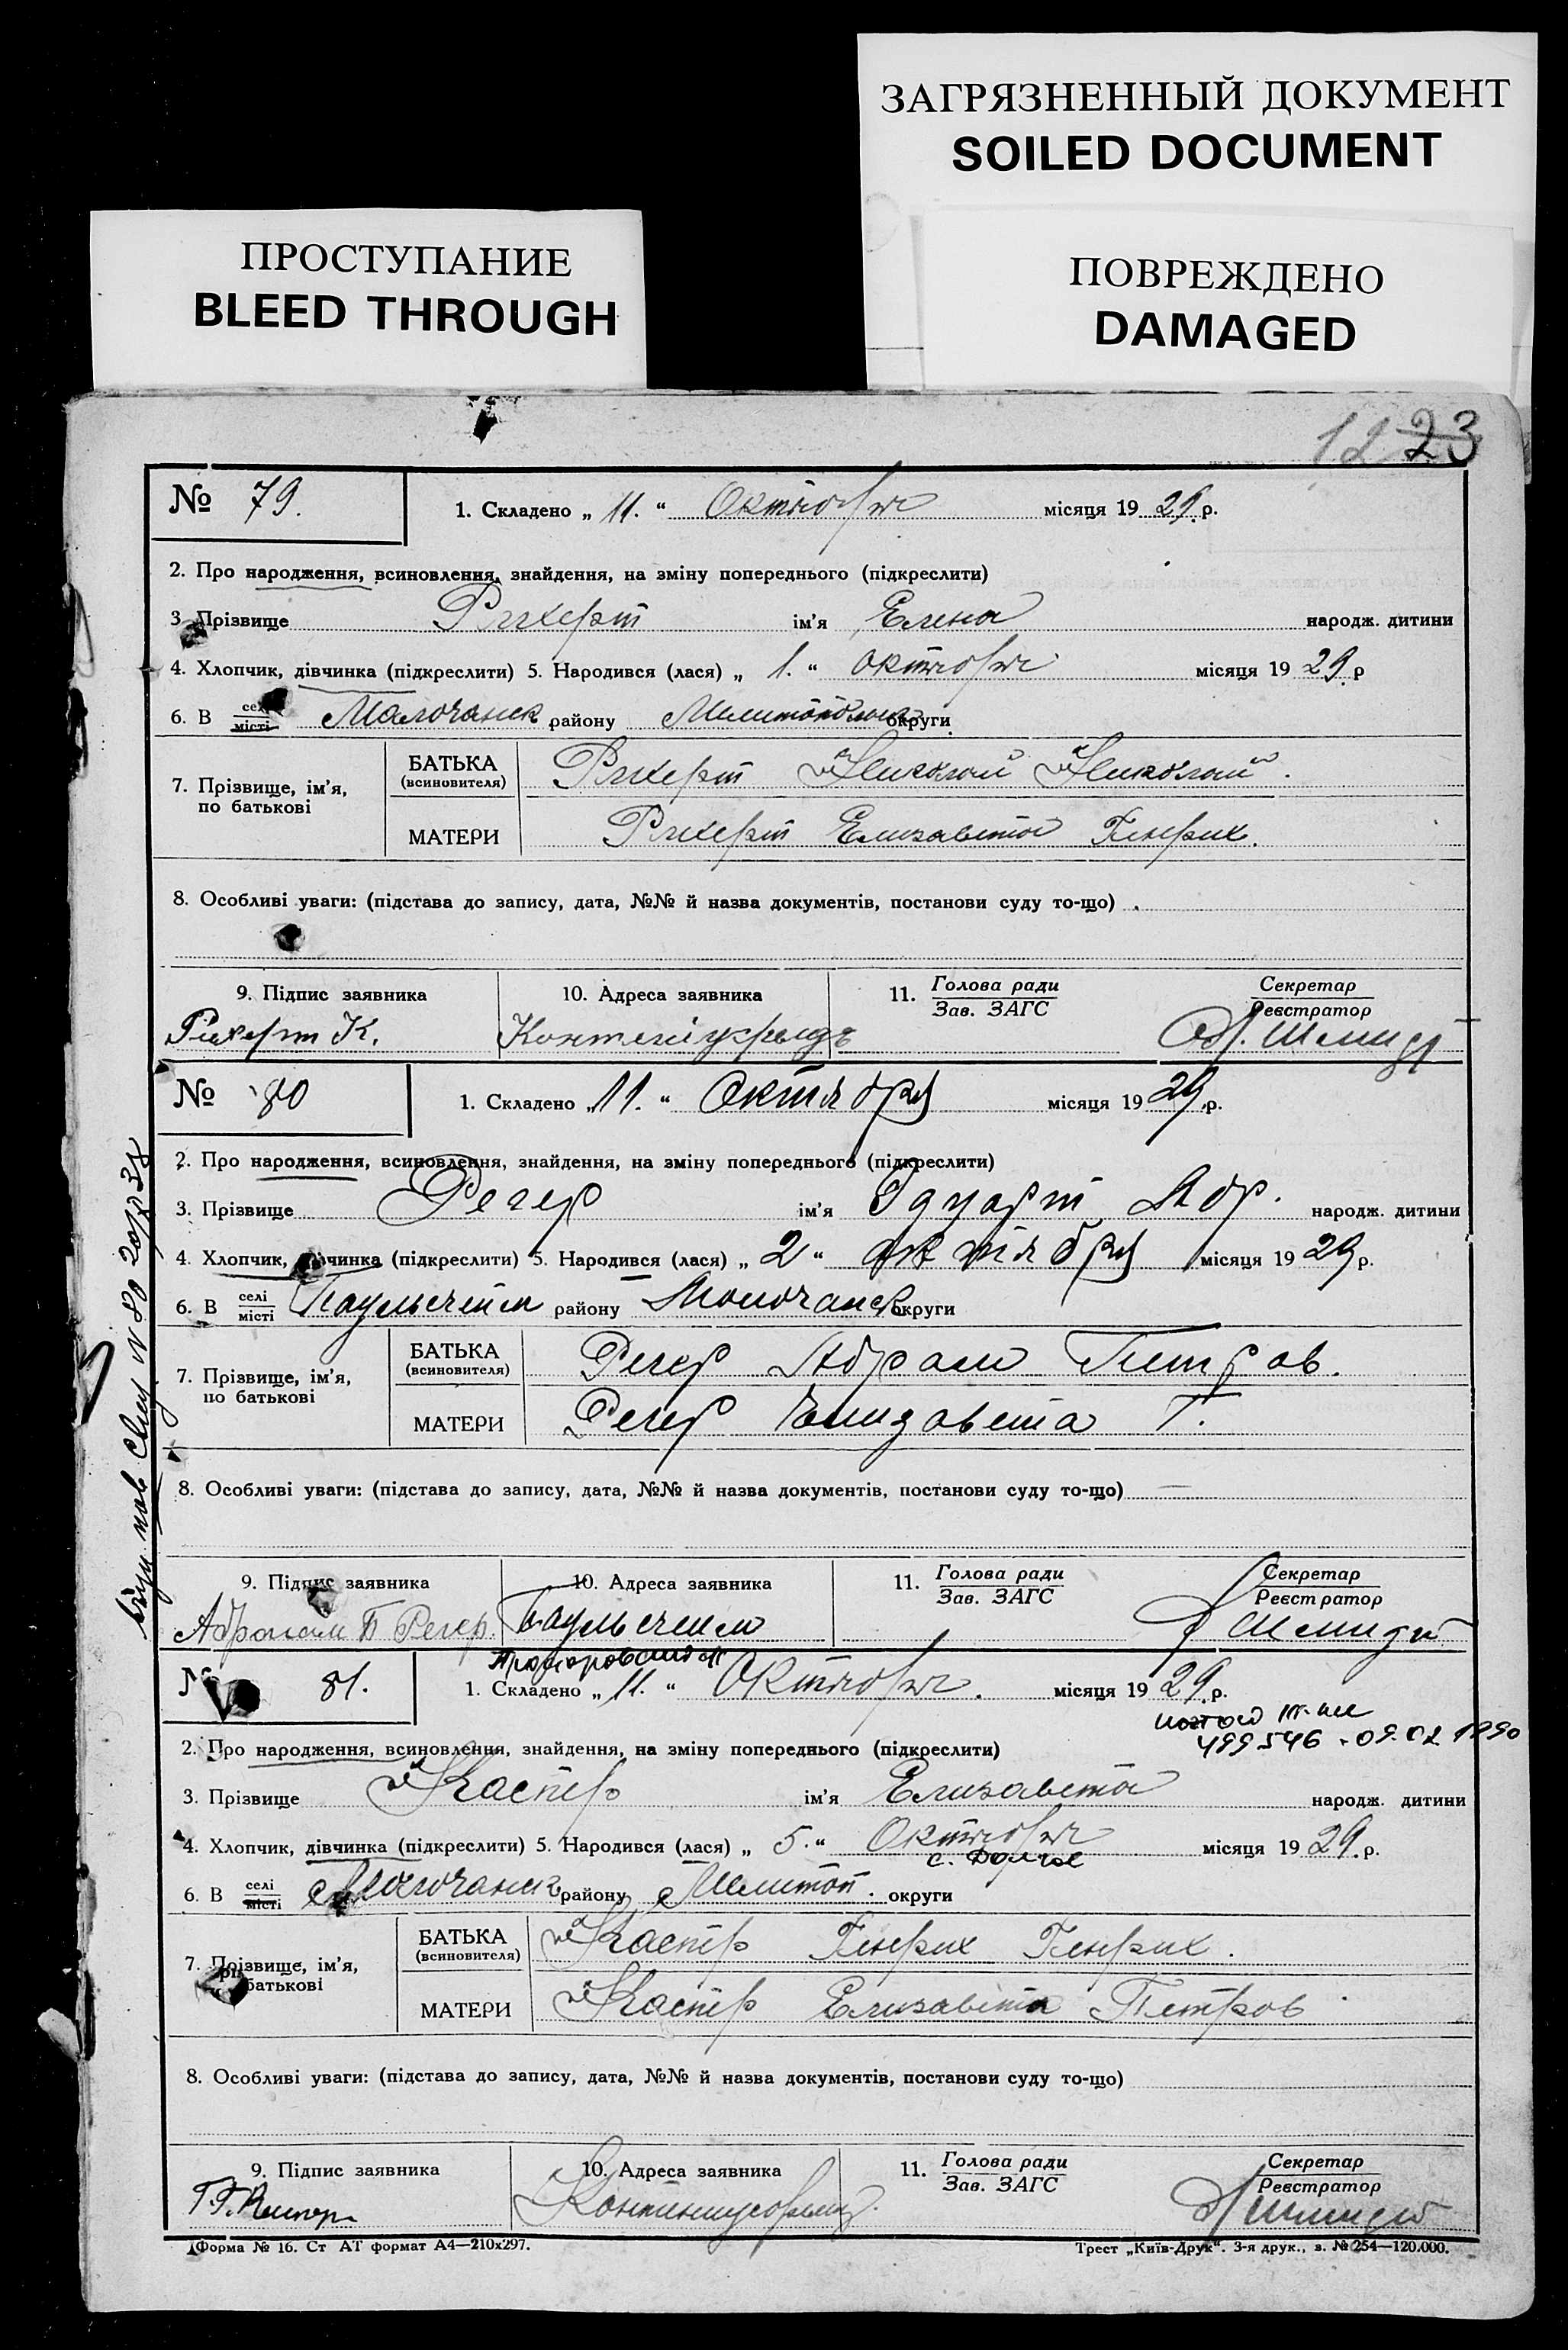 ЗАГРЯЗНЕННЫЙ ДОКУМЕНТ
SOILED DOCUMENT
ПРОСТУПАНИЕ
BLEED THROUGH
ПОВРЕЖДЕНО
DAMAGED
12 23
№ 79.
1. Складено „ 11. “ Октября місяця 19 29 р.
2. Про народження, всиновлення, знайдення, на зміну попереднього (підкреслити)
3. Прізвище Рихерт ім'я Елена народж. дитини
4. Хлопчик, дівчинка (підкреслити) 5. Народився (лася) „ 1. “ октября місяця 19 29 р
6. В селі місті Молочанск району округи
7. Прізвище, ім'я, по батькові
БАТЬКА (всиновителя) Рихерт Николай Николай.
МАТЕРИ Рихерт Елизавета Генрих.
8. Особливі уваги: (підстава до запису, дата, №№ й назва документів, постанови суду то-що)
9. Підпис заявника 10. Адреса заявника 11. Голова ради Зав. ЗАГС Секретар Реєстратор
Рихерт К.
№ 80
1. Складено „ 11. “ Октября місяця 19 29 р.
2. Про народження, всиновлення, знайдення, на зміну попереднього (підкреслити)
3. Прізвище Регер ім'я Эдуарт Абр. народж. дитини
4. Хлопчик, дівчинка (підкреслити) 5. Народився (лася) „ 2 “ октября місяця 19 29 р.
6. В селі місті Паульсгейм району Молочанск округи
7. Прізвище, ім'я, по батькові
БАТЬКА (всиновителя) Регер Абрам Петров.
МАТЕРИ Регер Елизавета Г.
8. Особливі уваги: (підстава до запису, дата, №№ й назва документів, постанови суду то-що)
9. Підпис заявника 10. Адреса заявника 11. Голова ради Зав. ЗАГС Секретар Реєстратор
Абрагам П Регер. Паульсгейм Шмидт
№ 81.
1. Складено „ 11. “ Октября. місяця 19 29 р.
499546 - 09.02 1990
2. Про народження, всиновлення, знайдення, на зміну попереднього (підкреслити)
3. Прізвище Каспер ім'я Елизавета народж. дитини
4. Хлопчик, дівчинка (підкреслити) 5. Народився (лася) „ 5. “ Октября місяця 19 29 р.
с. Долгое
6. В селі місті Молочанск району Мелитоп. округи
7. Прізвище, ім'я, по батькові
БАТЬКА (всиновителя) Каспер Генрих Генрих.
МАТЕРИ Каспер Елизавета Петров
8. Особливі уваги: (підстава до запису, дата, №№ й назва документів, постанови суду то-що)
9. Підпис заявника 10. Адреса заявника 11. Голова ради Зав. ЗАГС Секретар Реєстратор
Форма № 16. Ст АТ формат А4—210х297.
Трест „Київ-Друк“. 3-я друк., з. № 254—120.000.